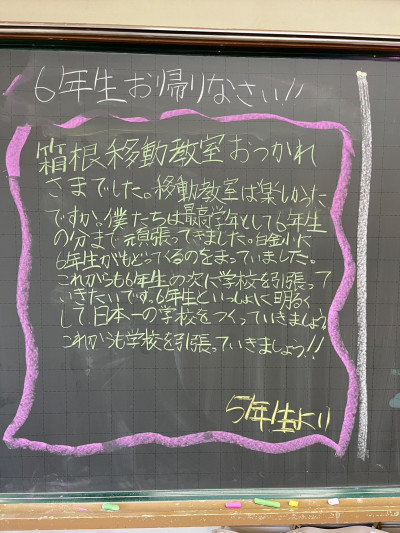 6年生お帰りなさい!!
箱根移動教室おつかれ
さまでした。移動教室は楽しかった
ですか。僕たちは最高学年として6年生
の分まで頑張ってきました。白金小に
6年生がもどってくるのをまっていました。
これからも6年生の次に学校を引張って
いきたいです。6年生といっしょに明るく
して日本一の学校をつくっていきましょう。
これからも学校を引張っていきましょう!!
5年生より